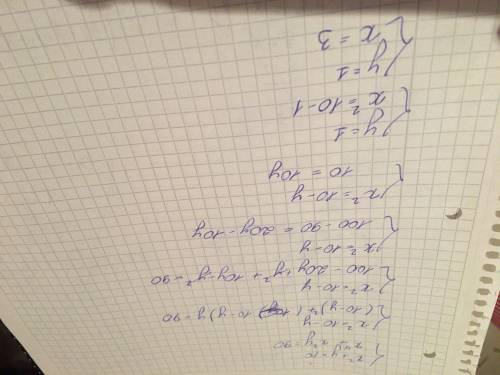 { x²+y=10
x⁴+x²y=90
{ x²=10-y
(10-y)²+(10-y)y=90
{ x²=10-y
100-20y+y²+10y-y²=90
{ x²=10-y
100-90=20y-10y
{ x²=10-y
10=10y
{ y=1
x²=10-1
{ y=1
x=3